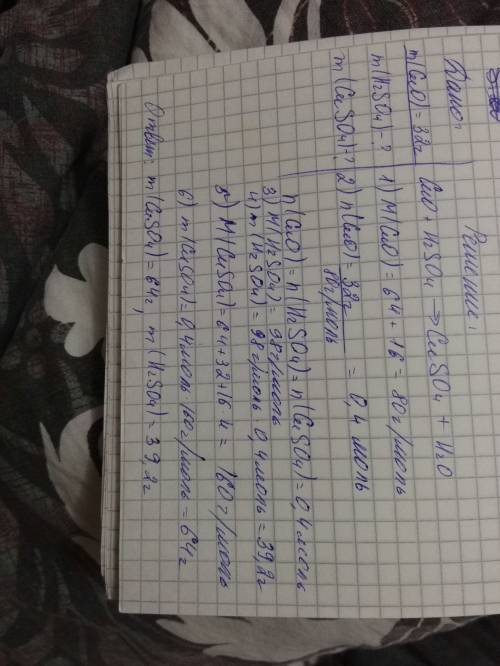 Решение:
Дано:
m(CuO) = 32г
CuO + H2SO4 → CuSO4 + H2O
m(H2SO4) - ?
1) M(CuO) = 64 + 16 = 80г/моль
m(CuSO4) - ?
2) n(CuO) = 32г / 80г/моль = 0,4 моль
n(CuO) = n(H2SO4) = n(CuSO4) = 0,4 моль
3) M(H2SO4) = 98г/моль
4) m(H2SO4) = 98г/моль · 0,4 моль = 39,2г
5) M(CuSO4) = 64 + 32 + 16 · 4 = 160г/моль
6) m(CuSO4) = 0,4 моль · 160г/моль = 64г
Ответ: m(CuSO4) = 64г, m(H2SO4) = 39,2г